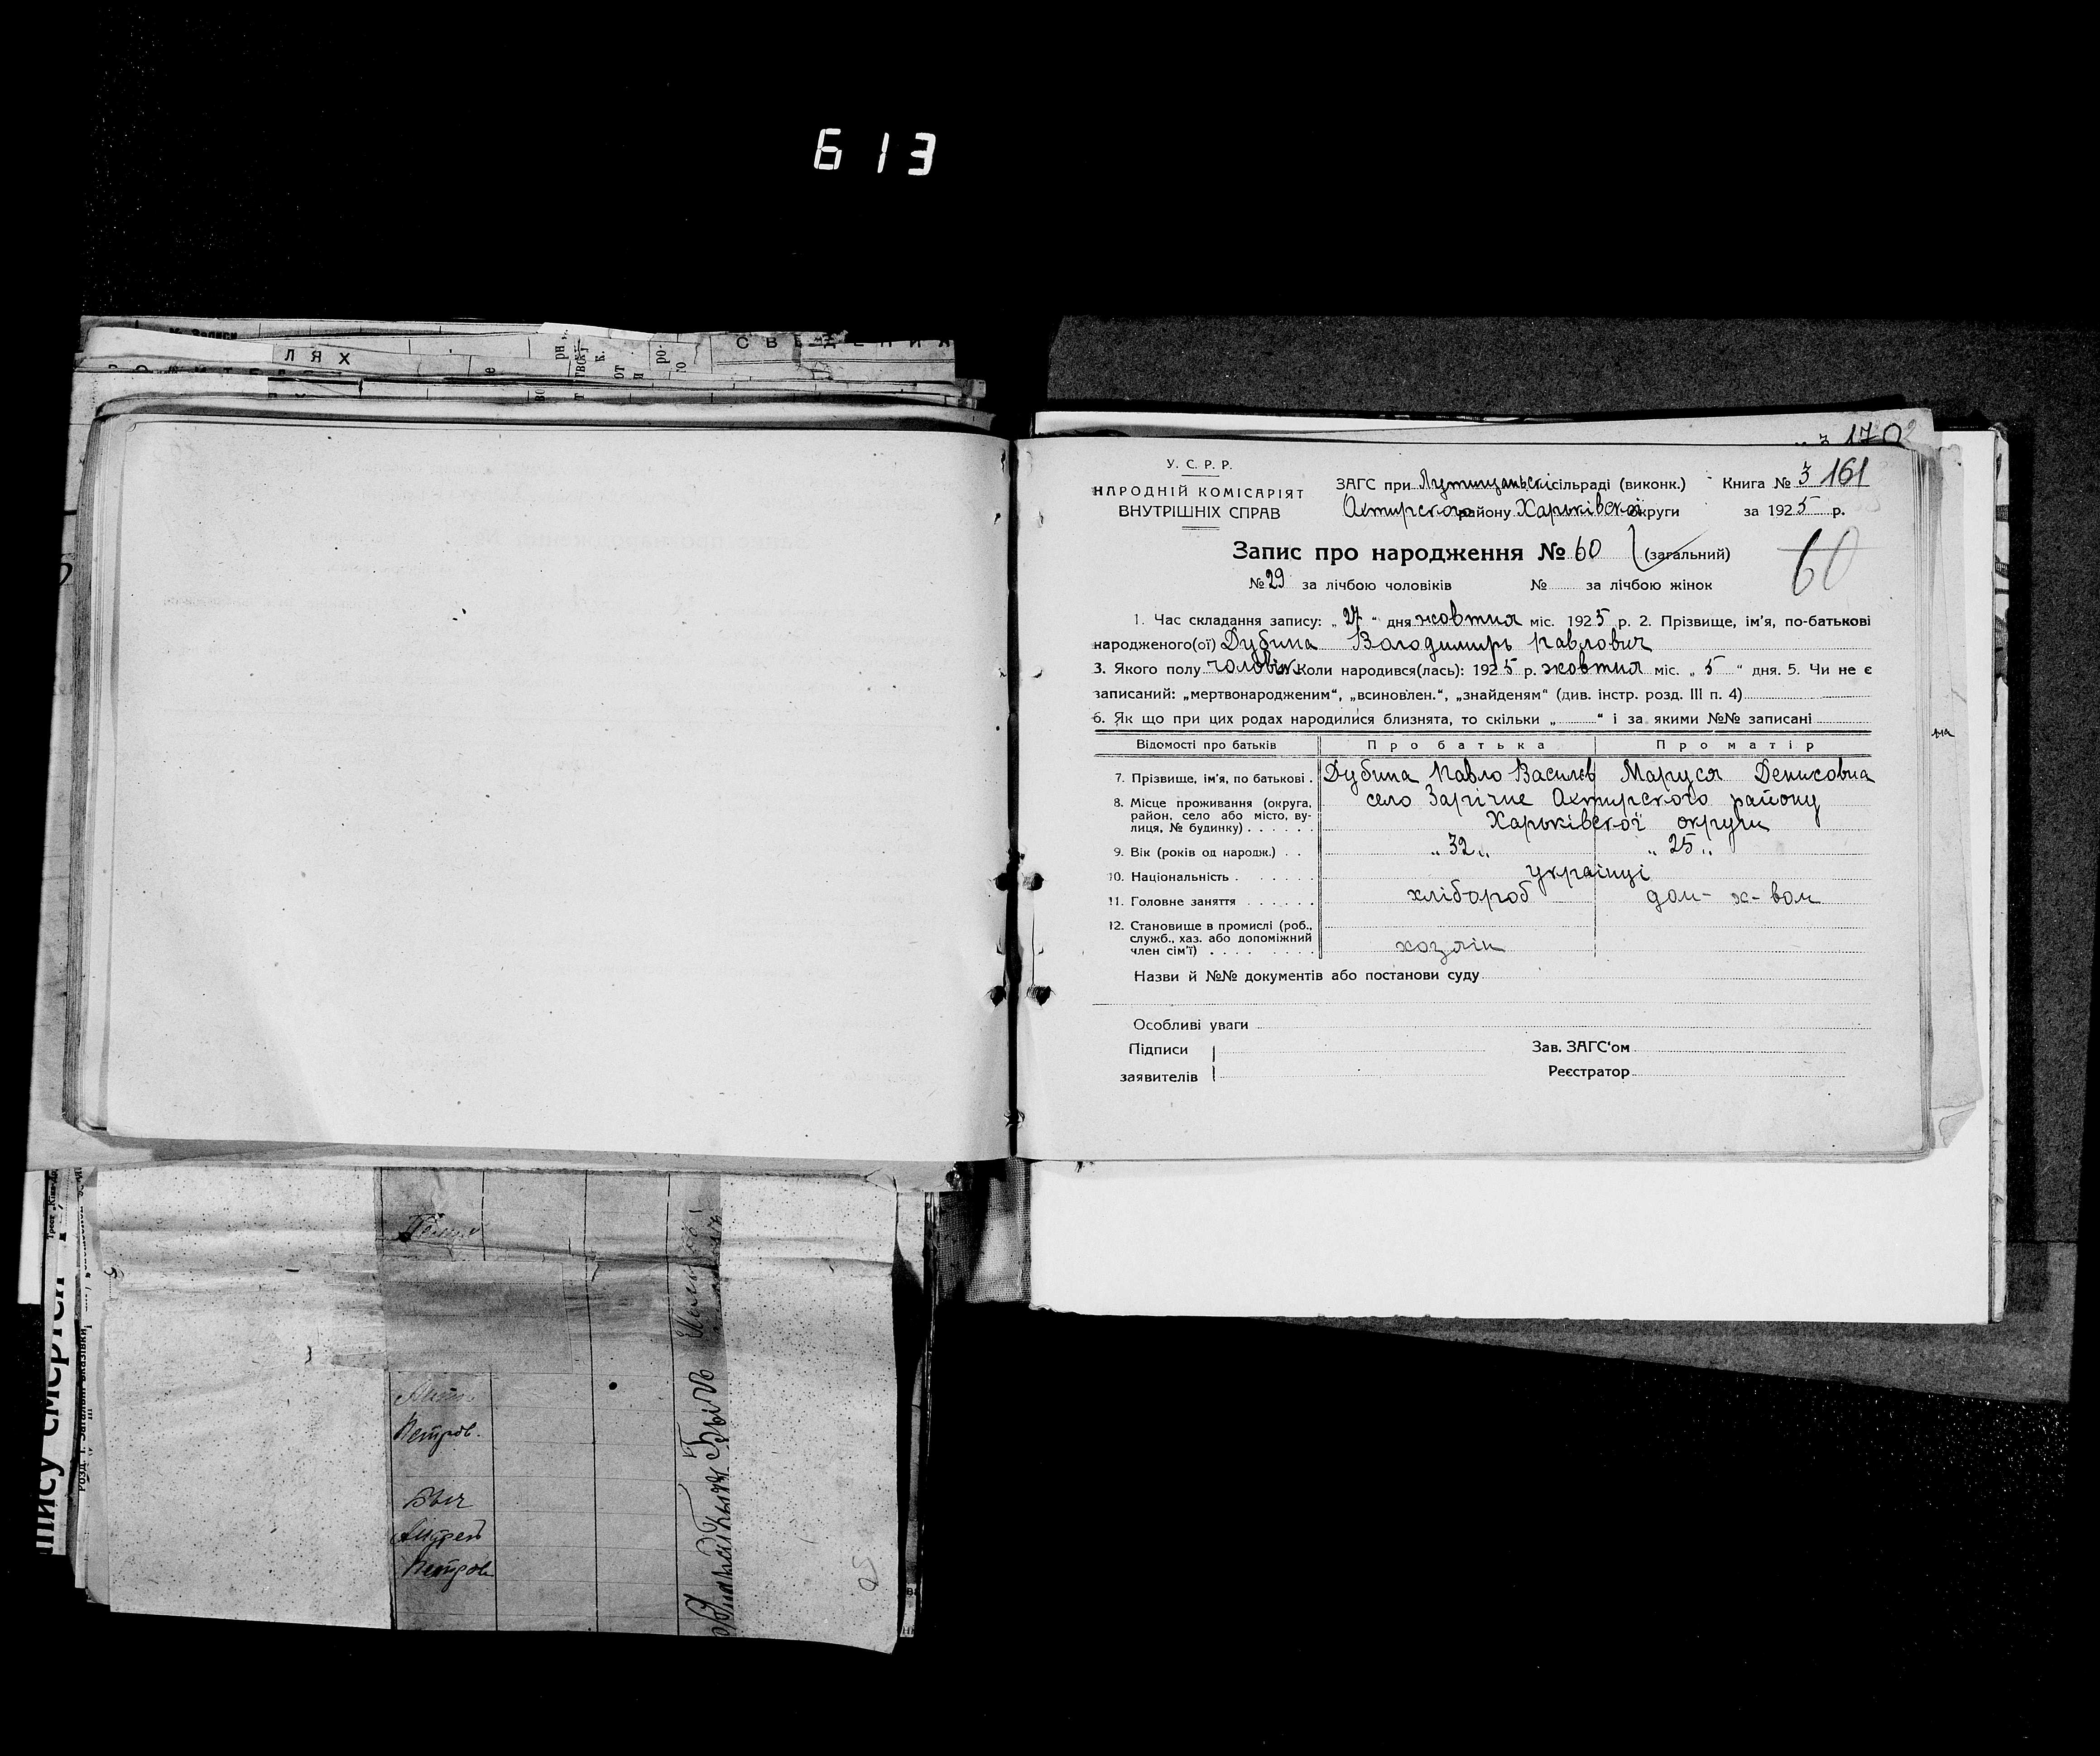 613
СВЕДЕНИЯ
ЛЯХ
170
У. С. Р. Р.
НАРОДНІЙ КОМІСАРІЯТ
ВНУТРІШНІХ СПРАВ
ЗАГС при Лутищанській сільраді (виконк.)
Книга № 3 161
Охтирского району Харьківскої округи
за 1925 р.
Запис про народження № 60 (загальний)
60
№ 29 за лічбою чоловіків № за лічбою жінок
1. Час складання запису: „27" дня жовтня міс. 1925 р. 2. Прізвище, ім'я, по-батькові
народженого(ої) Дубина Володимирь Павлович
3. Якого полу чоловік Коли народився(лась): 1925 р. жовтня міс. „5" дня. 5. Чи не є
записаний: „мертвонародженим", „всиновлен.", „знайденям" (див. інстр. розд. III п. 4)
6. Як що при цих родах народилися близнята, то скільки „ " і за якими №№ записані
Відомості про батьків Про батька Про матір
7. Прізвище, ім'я, по батькові . Дубина Павло Василів Маруся Денисовна
8. Місце проживання (округа, село Зарічне Охтирского району
район, село або місто, ву-
лиця, № будинку) . . . . . . Харьківскої округи
9. Вік (років од народж.) . . „32„ „25„
10. Національність . . . . . . українці
11. Головне заняття . . . . . . хлібороб дом- х- вом
12. Становище в промислі (роб.,
служб., хаз. або допоміжний
член сім'ї) . . . . . . . . хозяін
Назви й №№ документів або постанови суду
Особливі уваги
Підписи
заявителів
Зав. ЗАГС'ом
Реєстратор
Петров.
Быч
Андрей
Петров